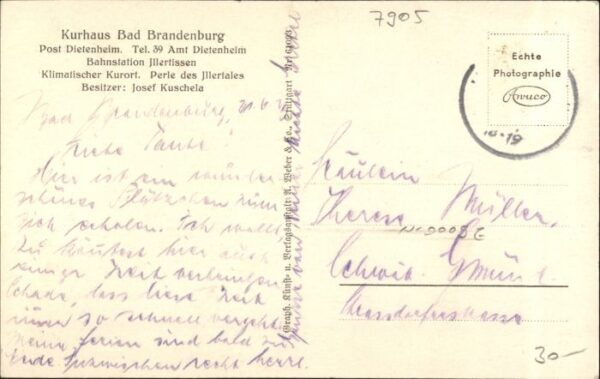 Kurhaus Bad Brandenburg
Post Dietenheim. Tel. 39 Amt Dietenheim
Bahnstation Jllertissen
Klimatischer Kurort. Perle des Jllertales
Besitzer: Josef Kuschela
Bad Brandenburg,
Liebe Tante!
Hier ist ein wunder
schönes Plätzchen zum
sich erholen. Ich wollt
Du könntest hier auch
einige Zeit verbringen
Schade, dass diese Zeit
immer so schnell vergeht
Meine Ferien sind bald zu
Ende. Inzwischen recht herzl.
Graph. Kunst- u. Verlagsanstalt A. Weber & Co., Stuttgart
7905
Echte
Photographie
Avuco
Fräulein
Therese Müller,
N-0008E
Schwäb. Gmünd
30-